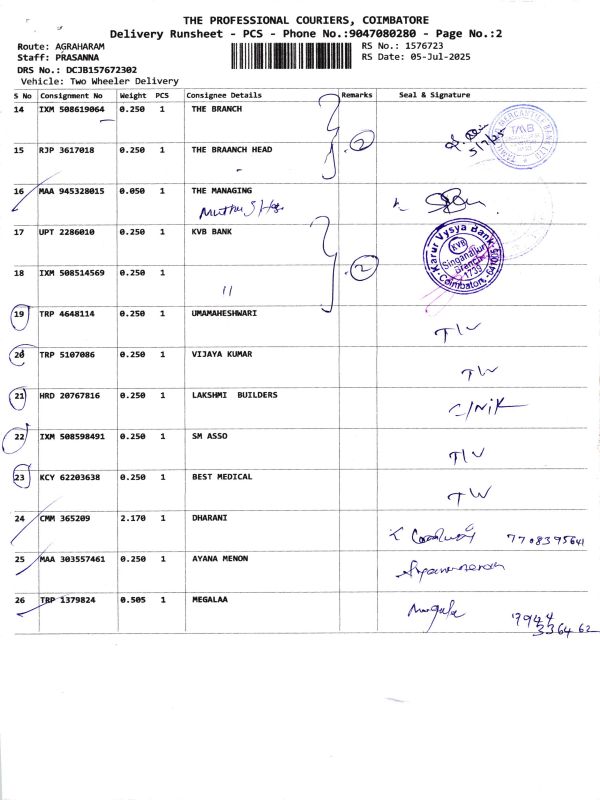 THE PROFESSIONAL COURIERS, COIMBATORE
Delivery Runsheet - PCS - Phone No.:9047080280 - Page No.:2
Route: AGRAHARAM RS No.: 1576723
Staff: PRASANNA RS Date: 05-Jul-2025
DRS No.: DCJB157672302
Vehicle: Two Wheeler Delivery
S No Consignment No Weight PCS Consignee Details Remarks Seal & Signature
14 IXM 508619064 0.250 1 THE BRANCH
2 5/7/25 TMB
15 RJP 3617018 0.250 1 THE BRAANCH HEAD
16 MAA 945328015 0.050 1 THE MANAGING
17 UPT 2286010 0.250 1 KVB BANK
2 Karur Vysya Bank KVB Singanallur Branch 1739 Coimbatore
18 IXM 508514569 0.250 1
11
19 TRP 4648114 0.250 1 UMAMAHESHWARI
TW
20 TRP 5107086 0.250 1 VIJAYA KUMAR
TW
21 HRD 20767816 0.250 1 LAKSHMI BUILDERS
22 IXM 508598491 0.250 1 SM ASSO
TW
23 KCY 62203638 0.250 1 BEST MEDICAL
TW
24 CMM 365209 2.170 1 DHARANI
7708395641
25 MAA 303557461 0.250 1 AYANA MENON
26 TRP 1379824 0.505 1 MEGALAA
Megala 7944
336462